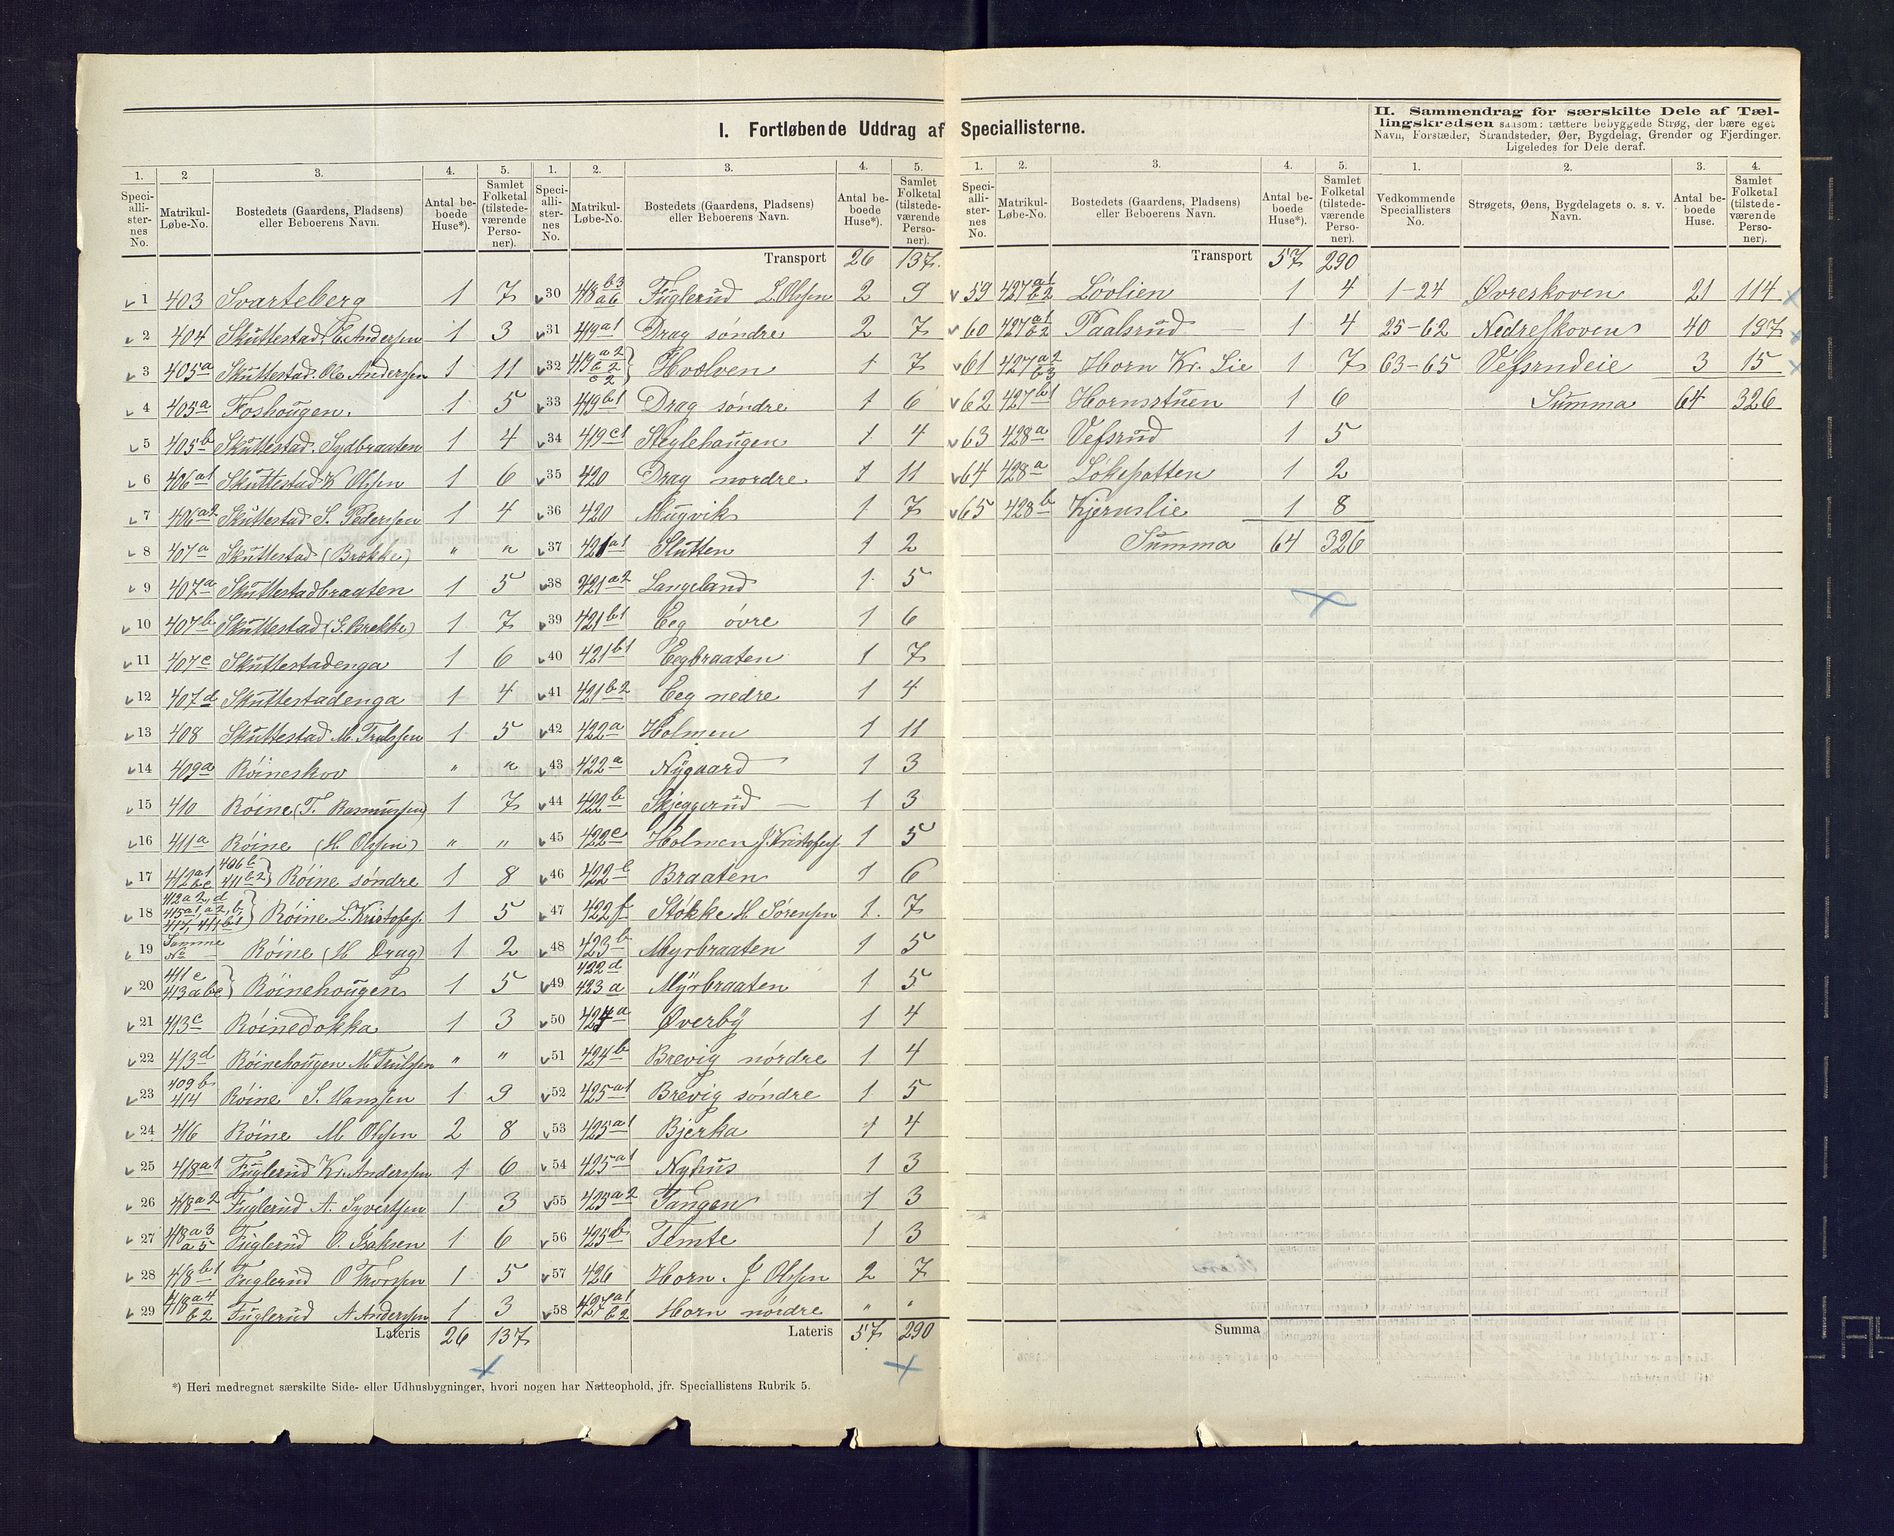 I. Fortløbende Uddrag af Speciallisterne.
II. Sammendrag for særskilte Dele af Tællingskredsen saasom: tættere bebyggede Strøg, der bære eget Navn, Forstæder, Strandsteder, Øer, Bygdelag, Grender og Fjerdinger. Ligeledes for Dele deraf.
1. 2 3. 4. 5.
Speciallisternes No. Matrikul-Løbe-No. Bostedets (Gaardens, Pladsens) eller Beboerens Navn. Antal beboede Huse*). Samlet Folketal (tilstedeværende Personer).
1 403 Svarteberg 1 7
2 404 Skuttestad E. Andersen 1 3
3 405a Skuttestad. Ole Anderssen 1 11
4 405a Foshougen. 1 5
5 405b Skuttestad. Sydbraaten 1 4
6 406a1 Skuttestad K Olssen 1 6
7 406a2 Skuttestad S. Pederssen 1 4
8 407a Skuttestad (Brække) " "
9 407a Skuttestadbraaten 1 5
10 407b Skuttestad (S. Brekke) 1 7
11 407c Skuttestadenga 1 6
12 407d Skuttestadenga 1 4
13 408 Skuttestad M. Trulssen 1 5
14 409a Røineskov " "
15 410 Røine (T. Rasmussen) 1 7
16 411a Røine (H. Olssen) " "
17 412a1 406b 412bc 411b2 } Røine søndre 1 8
18 412a2,d 415a1,a2,b, 417, 411b1 } Røine L. Kristofers. 1 5
19 Samme No Røine (H Drag) 1 2
20 411c 413a bc } Røinehougen 1 5
21 413c Røinedokka 1 3
22 413d Røinehougen M Trulssen " "
23 409b 414 Røine S. Hanssen 1 9
24 416 Røine M. Olssen 2 8
25 418a1 Fuglerud Kr. Anderssen 1 6
26 418a2 Fuglerud A. Syvertsen 1 3
27 418a3 a5 Fuglerud O. Isaksen 1 6
28 418b1 Fuglerud O Thorssen 1 5
29 418a4 b2 Fuglerud A Anderssen 1 3
Lateris 26 137
1. 2. 3. 4. 5.
Speciallisternes No. Matrikul-Løbe-No. Bostedets (Gaardens, Pladsens) eller Beboerens Navn. Antal beboede Huse*). Samlet Folketal (tilstedeværende Personer).
Transport 26 137
30 418b3 a6 Fuglerud L. Olssen 2 9
31 419a1 Drag søndre 2 7
32 419a2 b2 c2 } Hvolven 1 7
33 419b1 Drag søndre 1 6
34 419c1 Steglehaugen 1 4
35 420 Drag nordre 1 11
36 420 Mugvik 1 7
37 421a1 Slutten 1 2
38 421a2 Langeland 1 5
39 421b1 Eeg øvre 1 6
40 421b1 Eegbraaten 1 7
41 421b2 Eeg nedre 1 4
42 422a Holmen 1 11
43 422a Nygaard 1 3
44 422b Skjeggerud 1 3
45 422c Holmen J. Kristofers. 1 5
46 422e Braaten 1 6
47 422f Stokke H. Sørenssen 1 7
48 423b Myrbraaten 1 5
49 422d 423a Myrbraaten 1 5
50 424a Øverby 1 4
51 424b Brevig nordre 1 4
52 425a1 Brevig søndre 1 5
53 425a1 Bjerka 1 4
54 425a1 Nyhus 1 3
55 425a2 Tangen 1 3
56 425b Temte 1 3
57 426 Horn. J. Olssen 2 7
58 427a1 b2 Horn nordre " "
Lateris 57 290
*) Heri medregnet særskilte Side- eller Udhusbygninger, hvori nogen har Natteophold, jfr. Speciallistens Rubrik 5.
1. 2. 3. 4. 5.
Speciallisternes No. Matrikul-Løbe-No. Bostedets (Gaardens, Pladsens) eller Beboerens Navn. Antal beboede Huse*). Samlet Folketal (tilstedeværende Personer).
Transport 57 290
59 427a1 b2 Løvlien 1 4
60 427a1 b2 Paalsrud 1 4
61 427a2 b3 Horn Kr. Lie 1 7
62 427b1 Hornsstuen 1 6
63 428a Vefsrud 1 5
64 428a Løkepotten 1 2
65 428b Kjernslie 1 8
Summa 64 326
Summa
1. 2. 3. 4.
Vedkommende Speciallisters No. Strøgets, Øens, Bygdelagets o. s. v. Navn. Antal beboede Huse. Samlet Folketal (tilstedeværende Personer).
1-24 Øvreskoven 21 114
25-62 Nedreskoven 40 197
63-65 Vefsrndeie 3 15
Summa 64 326